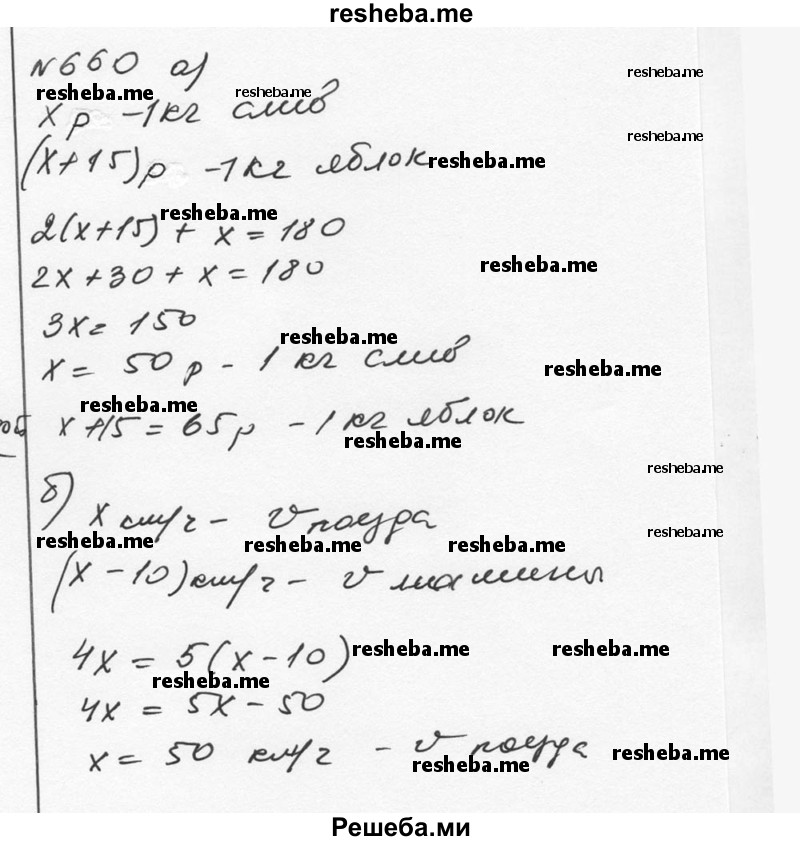 resheba.me
№660 а)
resheba.me resheba.me resheba.me
x р - 1 кг слив
resheba.me
(x+15)р - 1 кг яблок resheba.me
resheba.me
2(x+15) + x = 180
2x + 30 + x = 180 resheba.me
3x = 150
resheba.me
x = 50 р - 1 кг слив resheba.me
resheba.me
x+15 = 65р - 1 кг яблок
resheba.me
resheba.me
б)
x км/ч - v поезда
resheba.me resheba.me resheba.me resheba.me
(x - 10) км/ч - v машины
4x = 5(x-10) resheba.me resheba.me
resheba.me
4x = 5x - 50
x = 50 км/ч - v поезда resheba.me
resheba.me
Решеба.ми